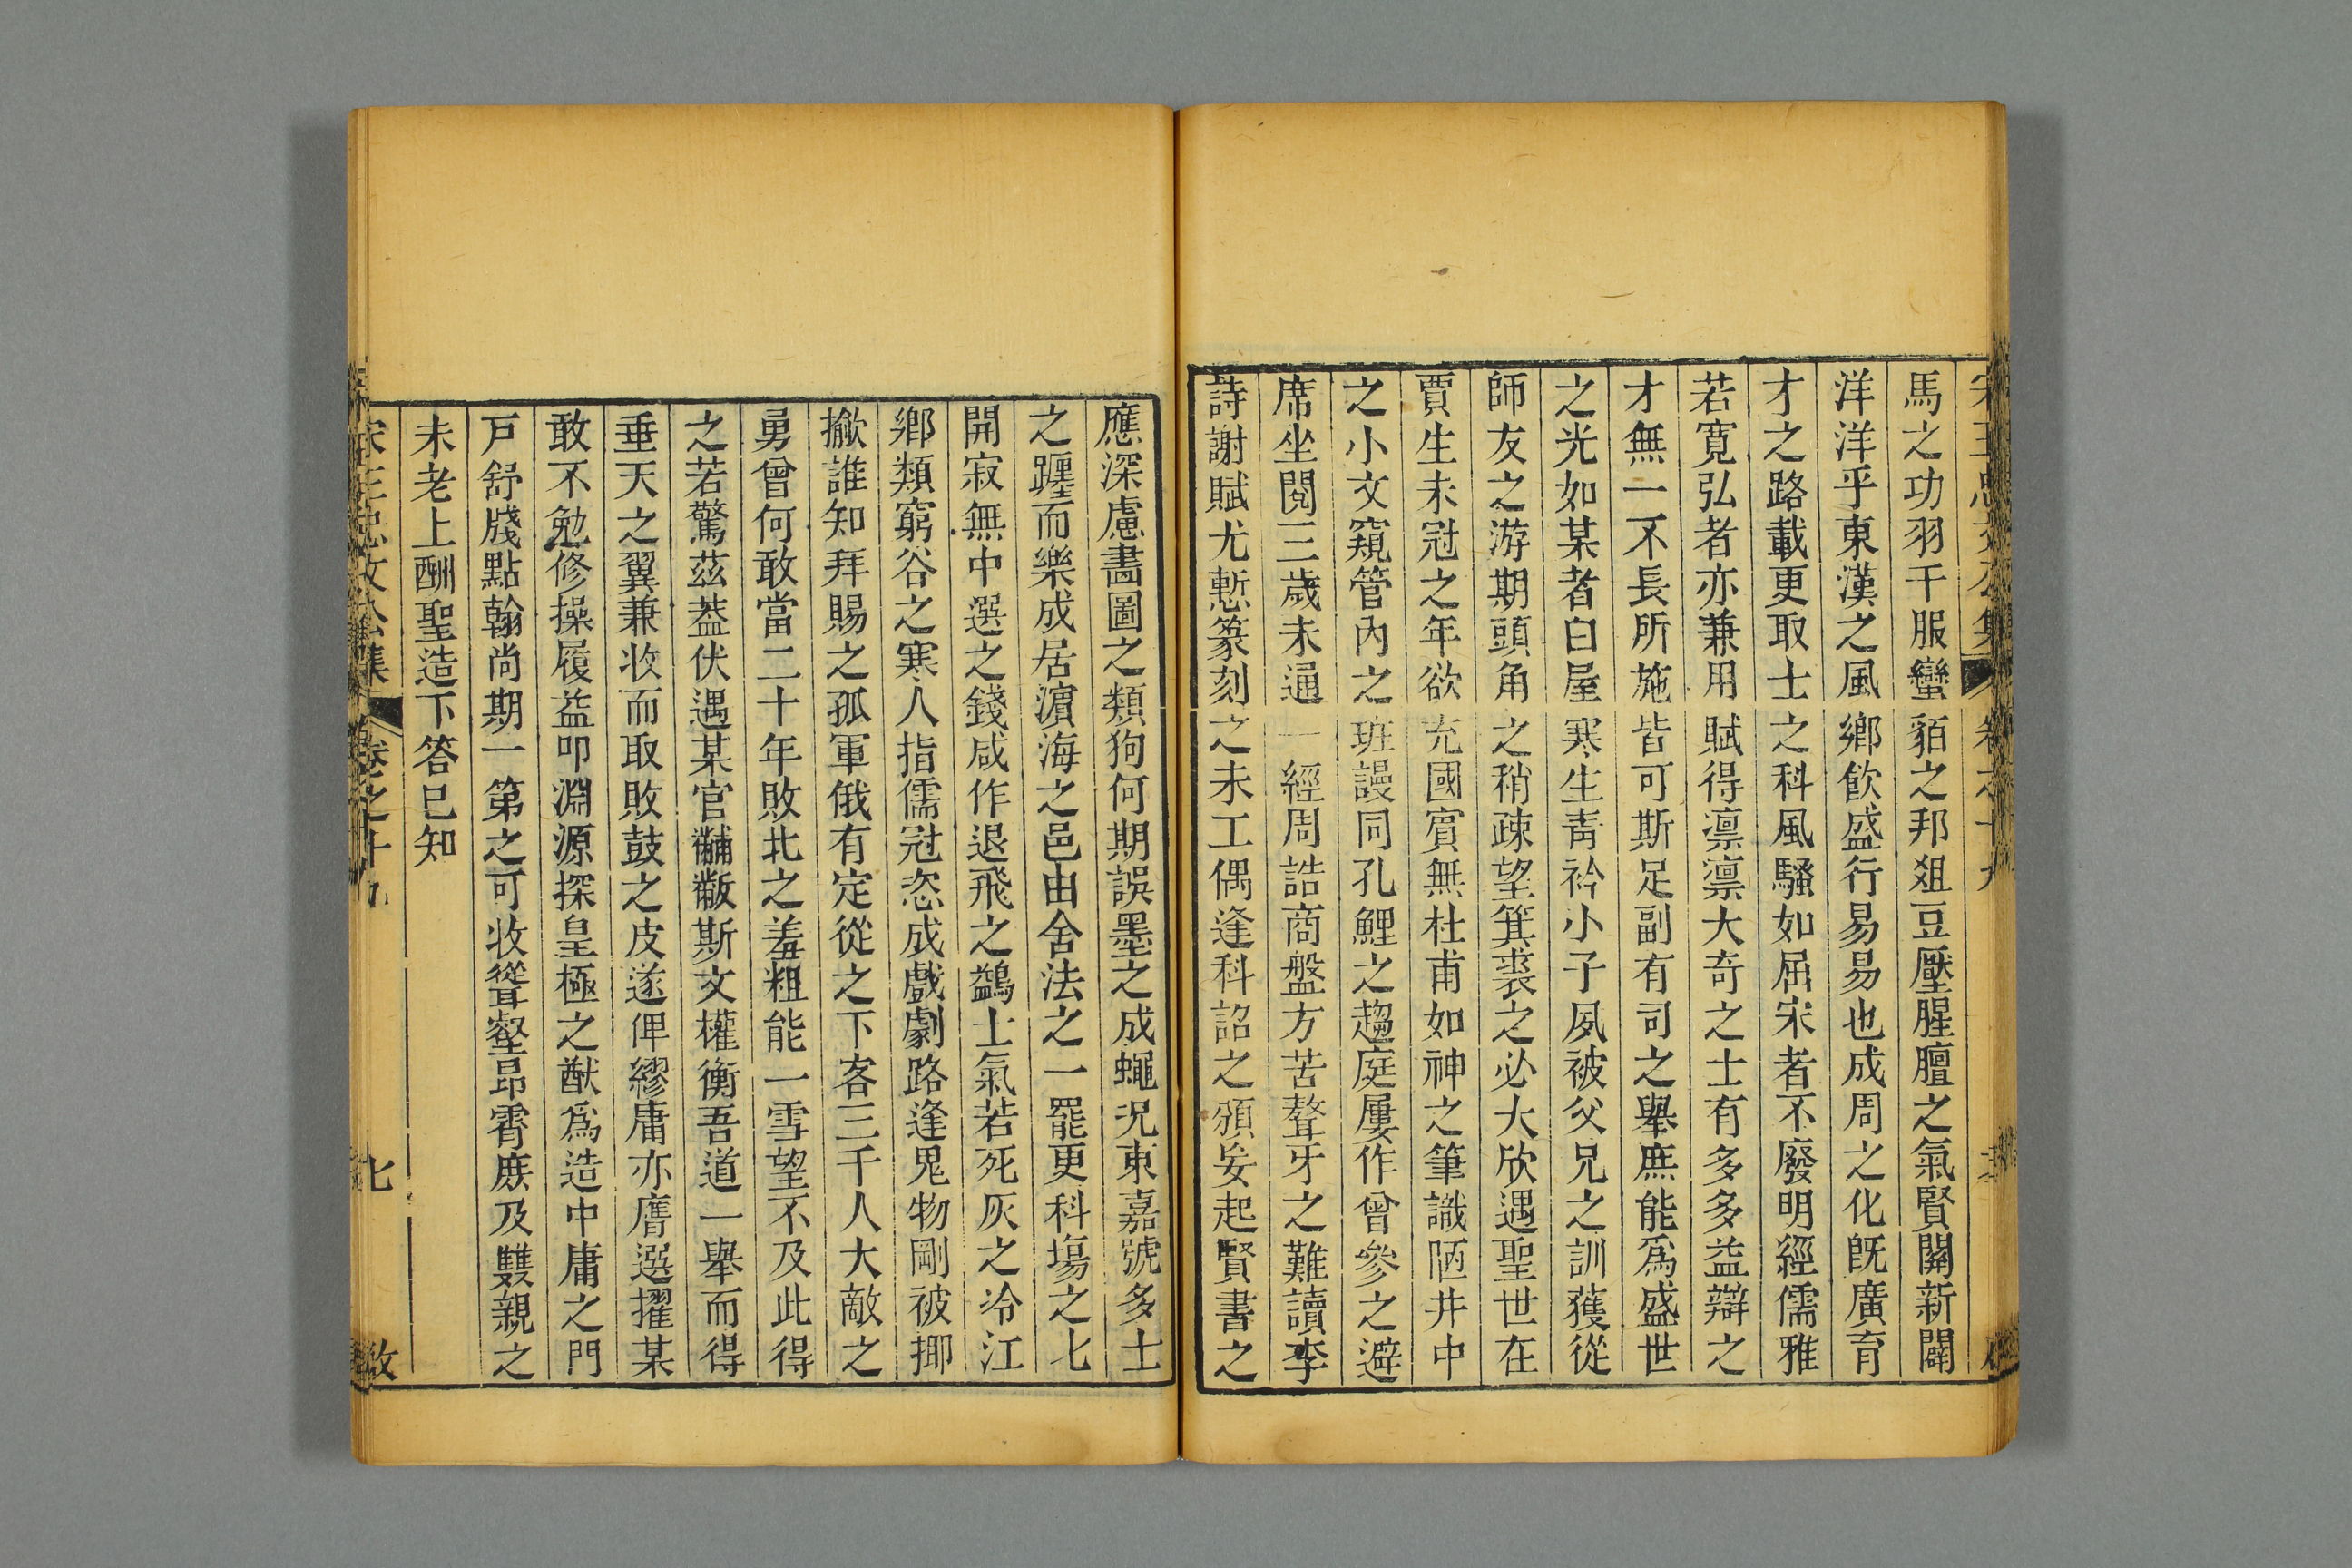 馬之功羽干服蠻貊之邦爼豆壓腥膻之氣賢關新闢
洋洋乎東漢之風鄉飮盛行易易也成周之化旣廣育
才之路載更取士之科風騷如屈宋者不廢明經儒雅
若寛弘者亦兼用賦得凛凛大奇之士有多多益辯之
才無一不長所施皆可斯足副有司之舉庶能爲盛世
之光如某者白屋寒生靑衿小子夙被父兄之訓獲從
師友之游期頭角之稍疎望箕裘之必大欣遇聖世在
賈生未冠之年欲充國賓無杜甫如神之筆識陋井中
之小文窺管內之班謾同孔鯉之趨庭屢作曾參之避
席坐閱三歲未通一經周誥商盤方苦聱牙之難讀李
詩謝賦尤慙篆刻之未工偶逢科詔之頒妄起賢書之
應深慮畫圖之類狗何期誤墨之成蠅况東嘉號多士
之躔而樂成居濵海之邑由舍法之一罷更科塲之七
開寂無中選之錢咸作退飛之鷁士氣若死灰之冷江
鄉類窮谷之寒人指儒冠恣成戲劇路逢鬼物剛被揶
擨誰知拜賜之孤軍俄有定從之下客三千人大敵之
勇曾何敢當二十年敗北之羞粗能一雪望不及此得
之若驚茲葢伏遇某官黼黻斯文權衡吾道一舉而得
垂天之翼兼收而取敗鼓之皮遂俾繆庸亦膺選擢某
敢不勉修操履益叩淵源探皇極之猷爲造中庸之門
戸舒牋點翰尚期一第之可收聳壑昻霄庶及雙親之
未老上酬聖造下答已知
宋王忠文公集 卷之十九 七 啟